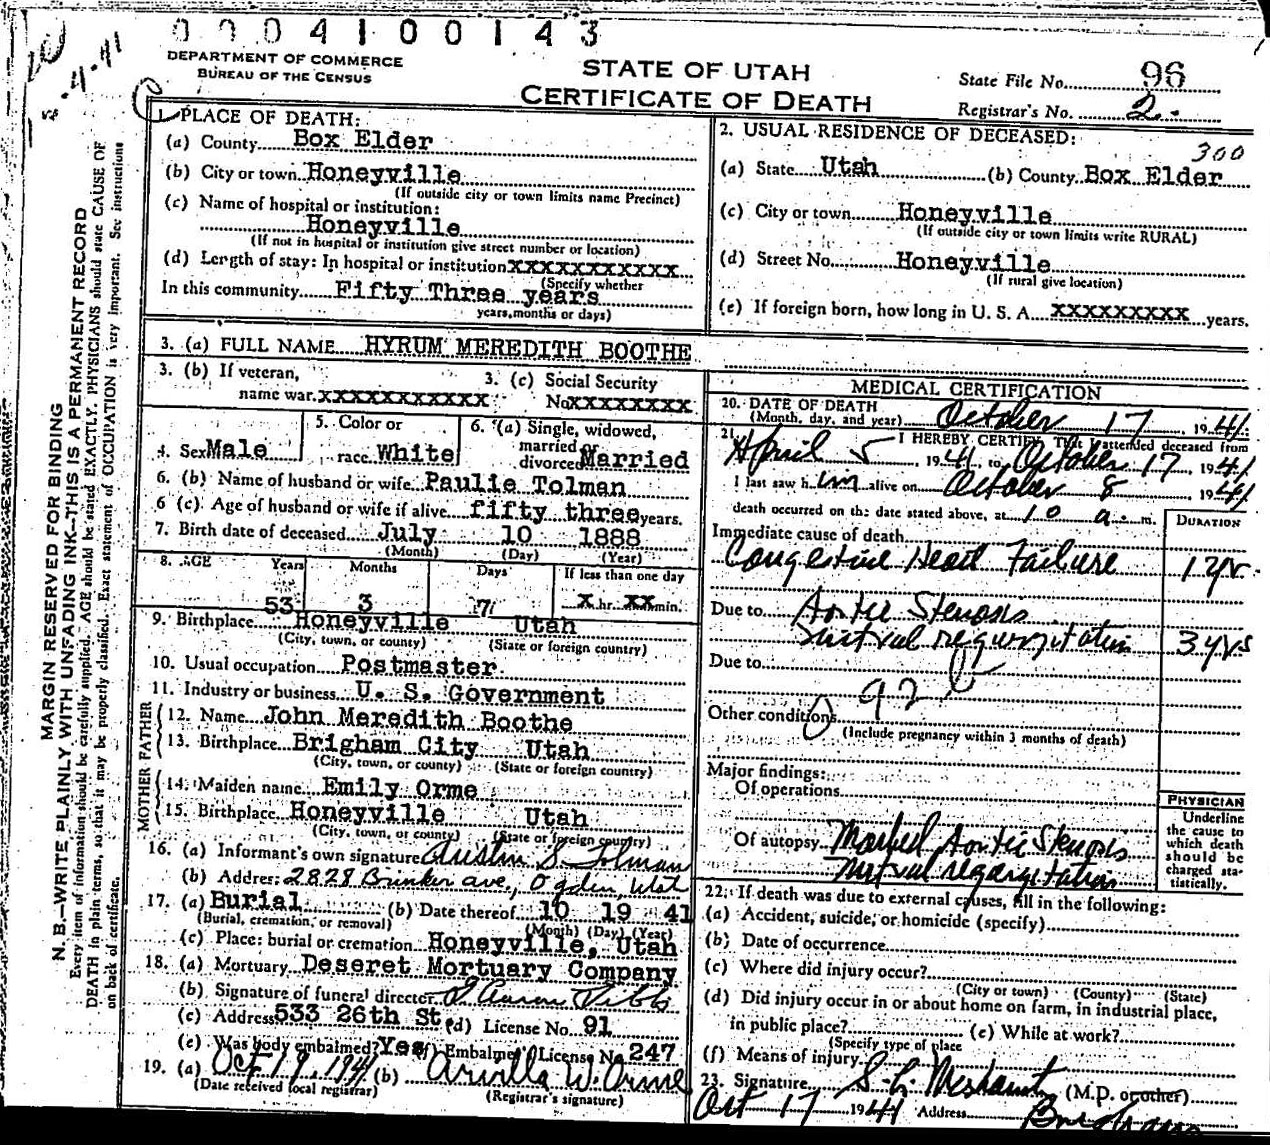 0004100143
DEPARTMENT OF COMMERCE
BUREAU OF THE CENSUS
STATE OF UTAH
CERTIFICATE OF DEATH
State File No. 96
Registrar's No. 2
1. PLACE OF DEATH:
(a) County Box Elder
(b) City or town Honeyville
(If outside city or town limits name Precinct)
(c) Name of hospital or institution:
Honeyville
(If not in hospital or institution give street number or location)
(d) Length of stay: In hospital or institution XXXXXXXXXXX
(Specify whether
In this community Fifty Three years
years, months or days)
2. USUAL RESIDENCE OF DECEASED:
300
(a) State Utah (b) County Box Elder
(c) City or town Honeyville
(If outside city or town limits write RURAL)
(d) Street No. Honeyville
(If rural give location)
(e) If foreign born, how long in U. S. A. XXXXXXXXX years.
3. (a) FULL NAME HYRUM MEREDITH BOOTHE
3. (b) If veteran,
name war. XXXXXXXXXXX
3. (c) Social Security
No. XXXXXXXX
4. Sex Male
5. Color or
race White
6. (a) Single, widowed,
married or
divorced Married
6. (b) Name of husband or wife Paulie Tolman
6 (c). Age of husband or wife if alive fifty three years.
7. Birth date of deceased July 10 1888
(Month) (Day) (Year)
8. AGE Years Months Days If less than one day
53 3 7 X hr. XX min.
9. Birthplace Honeyville Utah
(City, town, or county) (State or foreign country)
10. Usual occupation Postmaster
11. Industry or business U. S. Government
FATHER
12. Name John Meredith Boothe
13. Birthplace Brigham City Utah
(City, town, or county) (State or foreign country)
MOTHER
14. Maiden name Emily Orme
15. Birthplace Honeyville Utah
(City, town, or county) (State or foreign country)
16. (a) Informant's own signature Austin S. Tolman
(b) Address 2828 Brinker ave., Ogden, Utah
17. (a) Burial (b) Date thereof 10 19 41
(Burial, cremation, or removal) (Month) (Day) (Year)
(c) Place: burial or cremation Honeyville, Utah
18. (a) Mortuary Deseret Mortuary Company
(b) Signature of funeral director
(c) Address 533 26th St. (d) License No. 91
(e) Was body embalmed? Yes (f) Embalmer License No 247
19. (a) Oct 19, 1941 (b) Arvilla W. Orme
(Date received local registrar) (Registrar's signature)
MEDICAL CERTIFICATION
20. DATE OF DEATH
(Month, day, and year) October 17, 1941
21. I HEREBY CERTIFY That I attended deceased from
April 5, 1941, to October 17, 1941
I last saw him alive on October 8, 1941
death occurred on the date stated above, at 10 a. m.
DURATION
Immediate cause of death
Congestive Heart Failure 1 yr.
Due to Aortic Stenosis
mitral regurgitation 3 yrs
Due to
92 b
Other conditions
(Include pregnancy within 3 months of death)
Major findings:
Of operations
Of autopsy Marked Aortic Stenosis
Mitral regurgitation
PHYSICIAN
Underline
the cause to
which death
should be
charged sta-
tistically.
22. If death was due to external causes, fill in the following:
(a) Accident, suicide, or homicide (specify)
(b) Date of occurrence
(c) Where did injury occur?
(City or town) (County) (State)
(d) Did injury occur in or about home on farm, in industrial place,
in public place? (e) While at work?
(Specify type of place
(f) Means of injury
23. Signature (M.D. or other)
Oct 17 1941 Address
MARGIN RESERVED FOR BINDING
N. B.—WRITE PLAINLY WITH UNFADING INK—THIS IS A PERMANENT RECORD
Every item of information should be carefully supplied. AGE should be stated EXACTLY. PHYSICIANS should state CAUSE OF
DEATH in plain terms, so that it may be properly classified. Exact statement of OCCUPATION is very important. See instructions
on back of certificate.